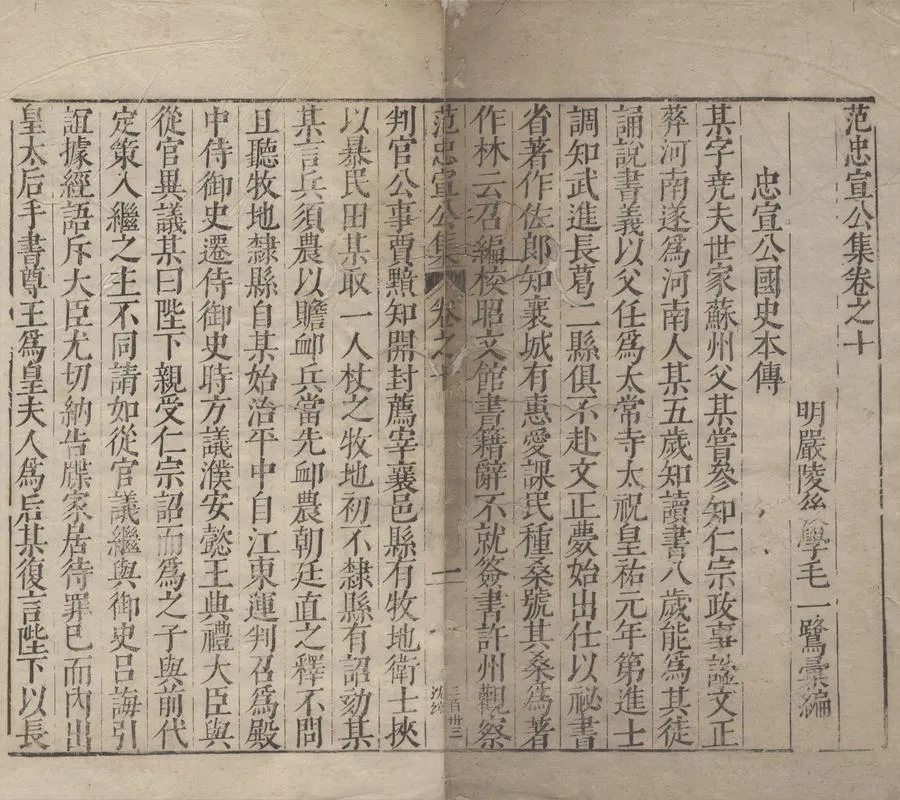 范忠宣公集卷之十
明嚴陵後學毛一鷺彙編
忠宣公國史本傳
某字堯夫世家蘇州父某嘗參知仁宗政事謚文正
葬河南遂爲河南人某五歲知讀書八歲能爲其徒
誦說書義以父任爲太常寺太祝皇祐元年第進士
調知武進長葛二縣俱不赴文正薨始出仕以祕書
省著作佐郎知襄城有惠愛課民種桑號其桑爲著
作林云召編校昭文館書籍辭不就簽書許州觀察
范忠宣公集 卷之十 一 三百卅三
判官公事賈黯知開封薦宰襄邑縣有牧地衛士挾
以暴民田某取一人杖之牧地初不隸縣有詔劾某
某言兵須農以贍卹兵當先卹農朝廷直之釋不問
且聽牧地隸縣自某始治平中自江東運判召爲殿
中侍御史遷侍御史時方議濮安懿王典禮大臣與
從官異議某曰陛下親受仁宗詔而爲之子與前代
定策入繼之主不同請如從官議繼與御史呂誨引
誼據經語斥大臣尤切納告牒家居待罪已而內出
皇太后手書尊王爲皇夫人爲后某復言陛下以長